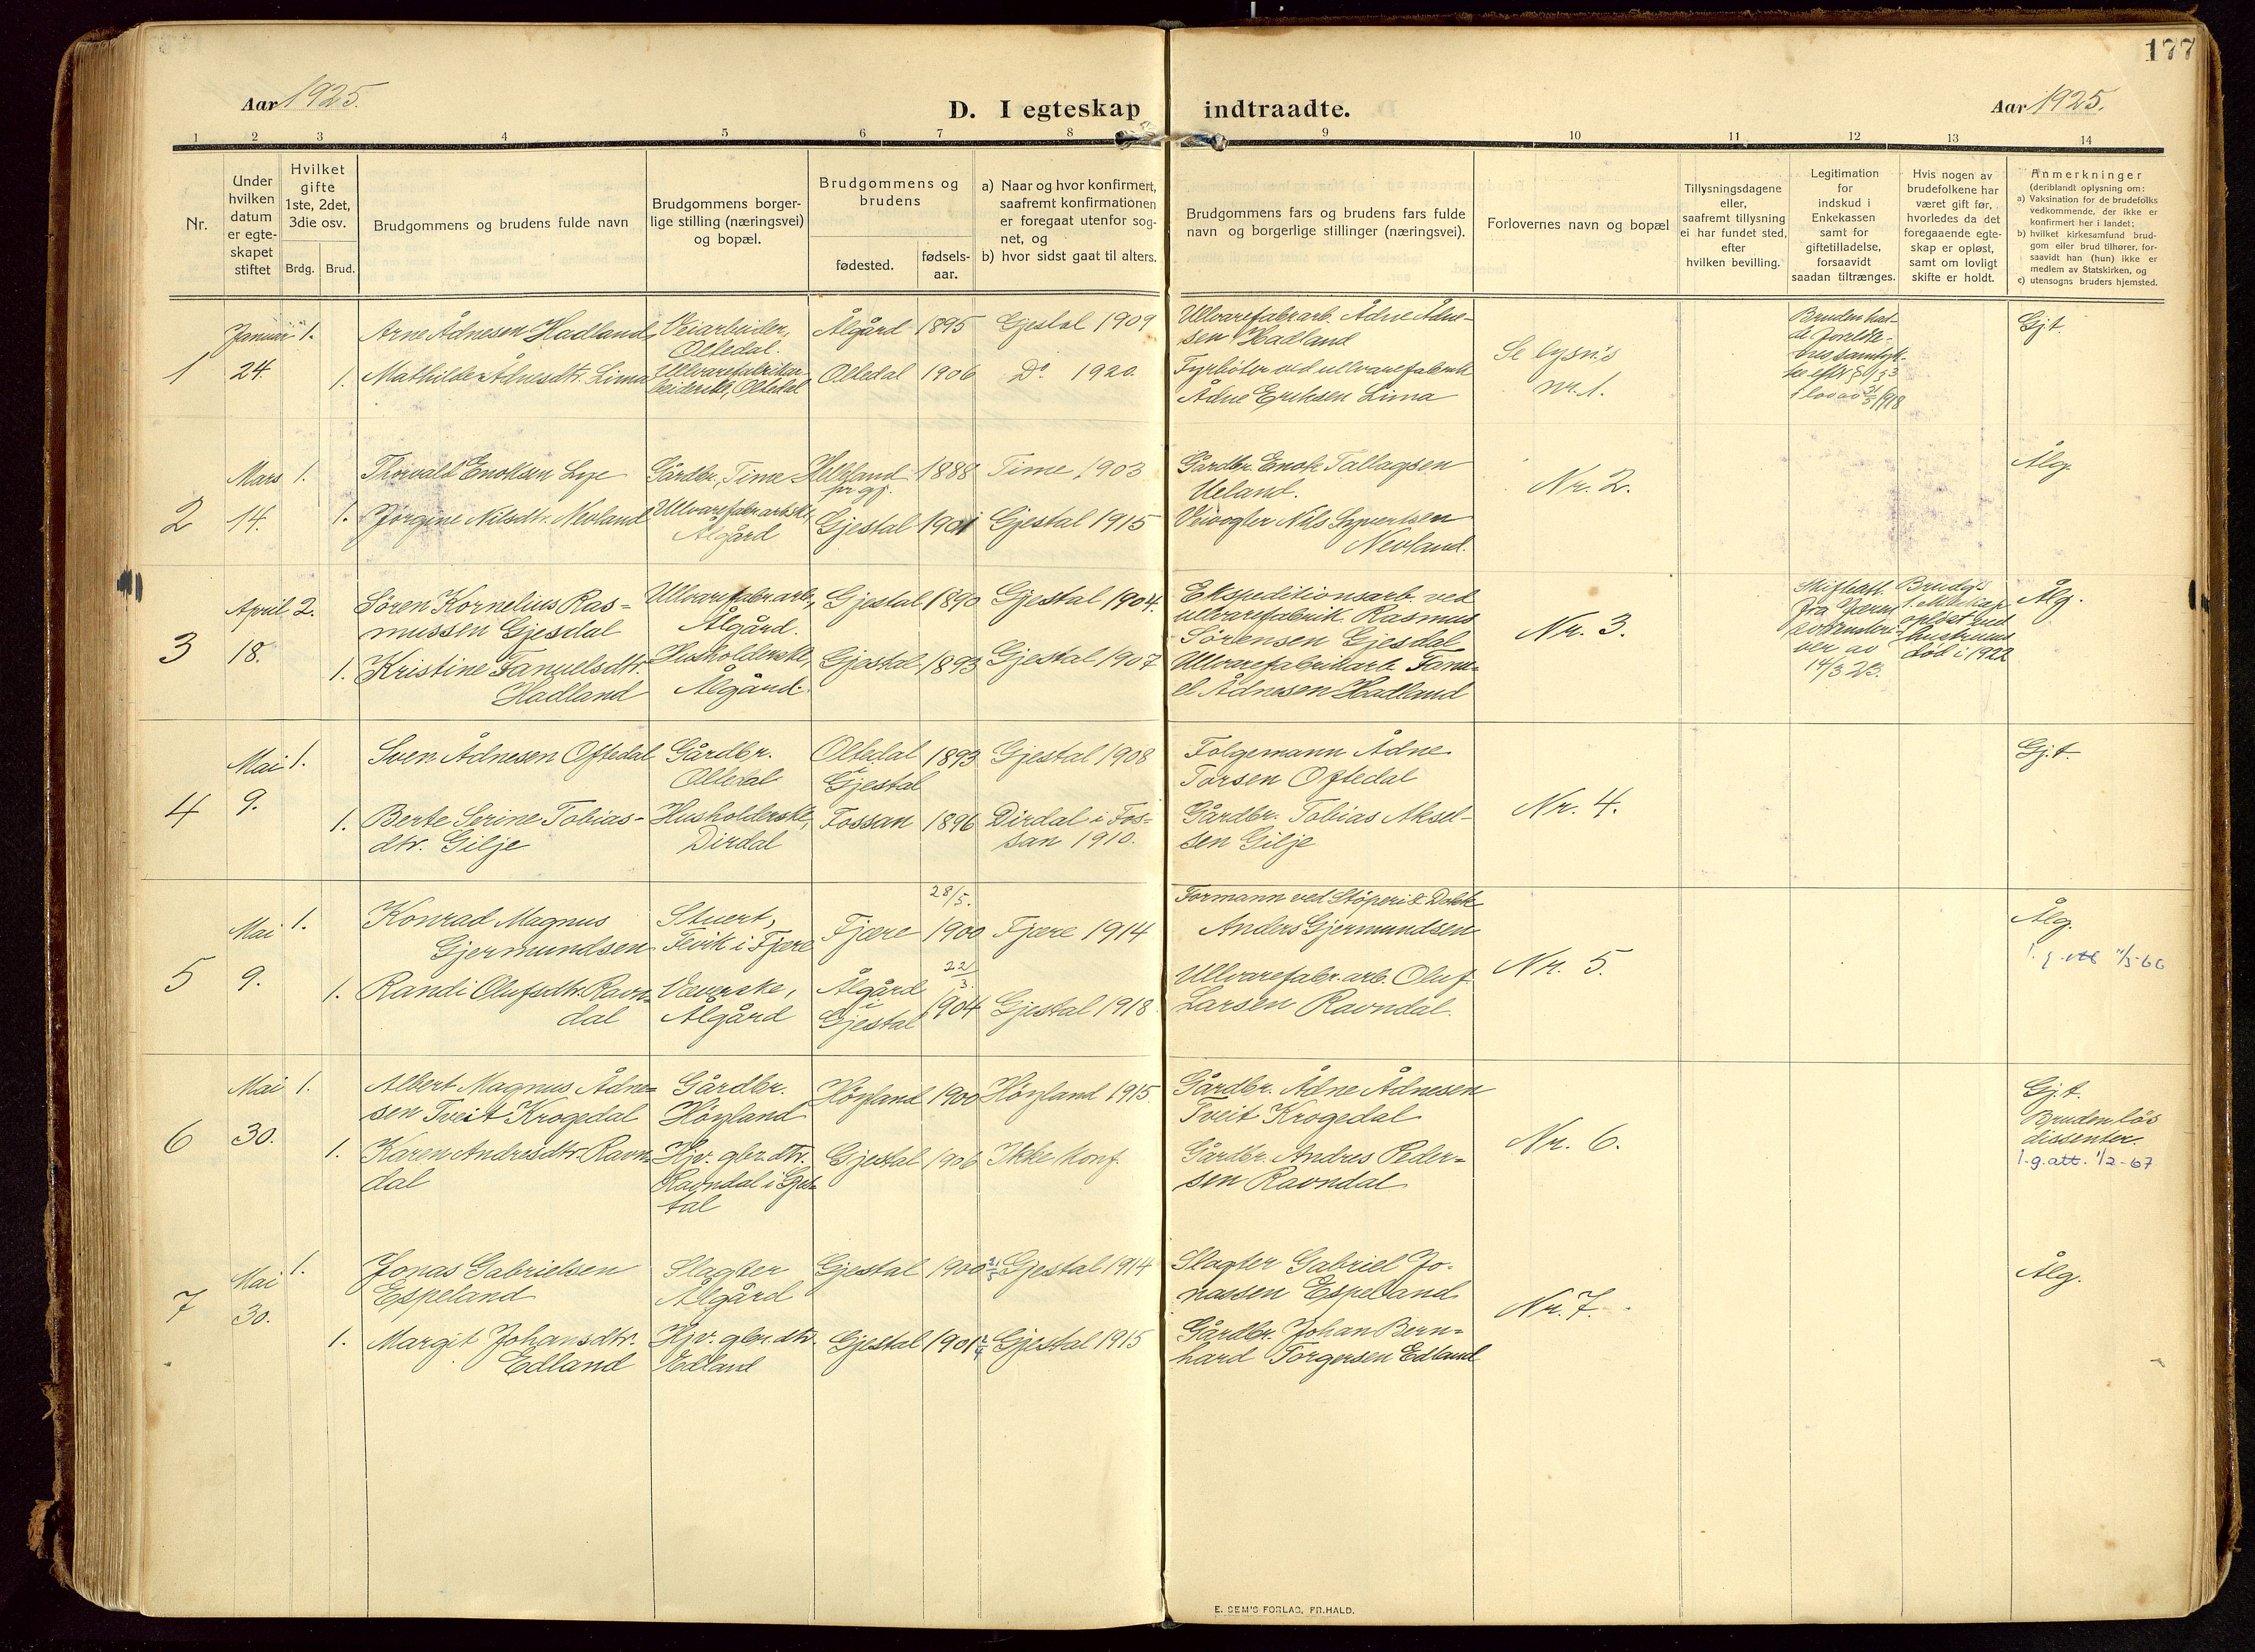 177
Aar 1925.
D. I egteskap indtraadte.
Aar 1925.
1 2 3 4 5 6 7 8 9 10 11 12 13 14
Nr.
Under
hvilken
datum
er egte-
skapet
stiftet
Hvilket
gifte
1ste, 2det,
3die osv.
Brdg. Brud.
Brudgommens og brudens fulde navn
Brudgommens borger-
lige stilling (næringsvei)
og bopæl.
Brudgommens og
brudens
fødested.
fødsels-
aar.
a) Naar og hvor konfirmert,
saafremt konfirmationen
er foregaat utenfor sog-
net, og
b) hvor sidst gaat til alters.
Brudgommens fars og brudens fars fulde
navn og borgerlige stillinger (næringsvei).
Forlovernes navn og bopæl
Tillysningsdagene
eller,
saafremt tillysning
ei har fundet sted,
efter
hvilken bevilling.
Legitimation
for
indskud i
Enkekassen
samt for
giftetilladelse,
forsaavidt
saadan tiltrænges.
Hvis nogen av
brudefolkene har
været gift før,
hvorledes da det
foregaaende egte-
skap er opløst,
samt om lovligt
skifte er holdt.
Anmerkninger
(deriblandt oplysning om:
a) Vaksination for de brudefolks
vedkommende, der ikke er
konfirmert her i landet;
b) hvilket kirkesamfund brud-
gom eller brud tilhører, for-
saavidt han (hun) ikke er
medlem av Statskirken, og
c) utensogns bruders hjemsted.
1
Januar
24.
1.
Arne Ådnesen Hadland
Veiarbeider,
Oltedal.
Ålgård 1895 Gjestal 1909
Ullvarefabr.arb. Ådne Ådne-
sen Hadland
1. Mathilde Ådnesdtr. Lima
Ullvarefabrikar-
beiderske, Oltedal
Oltedal 1906 Do 1920
Fyrbøter ved ullvarefabrik
Ådne Eriksen Lima
Se lysn.s
nr. 1.
Bruden had-
de foreldre-
nes samtyk-
ke efter §
i lov av 31/5 1918
Gjt.
2
Mars
14.
1.
Thorvald Enoksen Lye
Gårdbr., Time
Helleland
pr. gj.
1888 Time 1903
Gårdbr. Enok Tallagsen
Ueland.
1. Jørgine Nilsdtr. Nevland
Ullvarefabr.arbske,
Ålgård
Gjestal 1901 Gjestal 1915
Veivogter Nils Syvertsen
Nevland.
Nr. 2.
Ålg.
3
April
18.
2.
Søren Kornelius Ras-
mussen Gjesdal
Ullvarefabr.arb.,
Ålgård.
Gjestal 1890 Gjestal 1904.
Ekspeditionsarb. ved
ullvarefabrik Rasmus
Sørensen Gjesdal
1. Kristine Fanuelsdtr.
Hadland
Husholderske,
Ålgård.
Gjestal 1893 Gjestal 1907
Ullvarefabrikarb. Fanu-
el Ådnesen Hadland
Nr. 3.
Skifteatt.
fra Jæren
sorenskri-
ver av
14/3 23.
Brudg.s
1. ekteskap
opløst ved
hustruens
død i 1922
Ålg.
4
Mai
9.
1.
Sven Ådnesen Oftedal
Gårdbr.
Oltedal
Oltedal
i
Gjestal
1893 Gjestal 1908
Følgemann Ådne
Torsen Oftedal
1. Berte Serine Tobias-
dtr. Gilje
Husholderske,
Dirdal
Fossan 1896 Dirdal i Fos-
san 1910.
Gårdbr. Tobias Aksel-
sen Gilje
Nr. 4.
Gj.t.
5
Mai
9.
1.
Konrad Magnus
Gjermundsen
Stuert,
Fevik i Fjære
Fjære
28/5.
1900 Fjære 1914
Formann ved Støperi & Dokk
Anders Gjermundsen
1. Randi Olufsdtr. Ravn-
dal
Væverske,
Ålgård
Ålgård
i
Gjestal
22/3.
1904 Gjestal 1918.
Ullvarefabr.arb. Oluf
Larsen Ravndal.
Nr. 5.
Ålg.
1. g. att 11/5-66
6
Mai
30.
1.
Albert Magnus Ådne-
sen Tveit Krogedal
Gårdbr.
Höyland
Höyland 1900 Höyland 1915.
Gårdbr. Ådne Ådnesen
Tveit Krogedal
1. Karen Andresdtr. Ravn-
dal
Hjv. gbr.dtr.
Ravndal i Gjes-
tal
Gjestal 1906 Ikke konf.
Gårdbr. Andres Peder-
sen Ravndal
Nr. 6.
Gj.t.
Bruden løs
dissenter.
1.g.att. 1/2-67
7
Mai
30.
1.
Jonas Gabrielsen
Espeland
Slagter
Ålgård
Gjestal 1900 Gjestal 1914
Slagter Gabriel Jo-
nassen Espeland
1. Margit Johansdtr.
Edland
Hjv. gbr.dtr.
Edland
Gjestal 1901 2/4 Gjestal 1915
Gårdbr. Johan Bern-
hard Torgersen Edland
Nr. 7.
Ålg.
E. SEM'S FORLAG, FR.HALD.